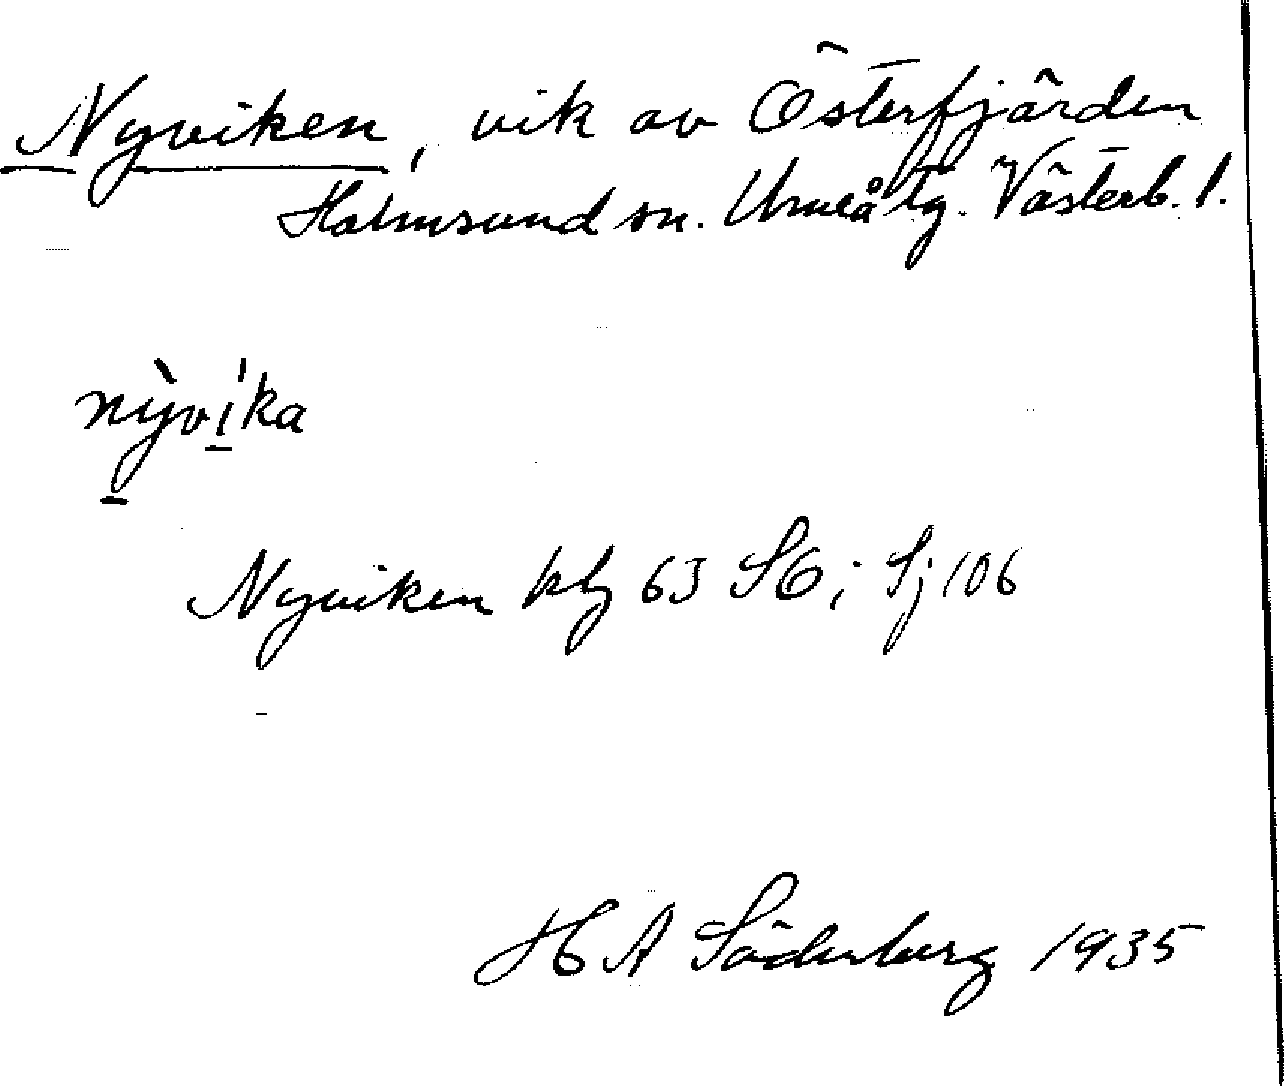 Nyviken, vik av Österfjärden
Holmsund sn. Umeå tg. Västerb. l.
nỳvi̱ka
Nyviken kbl 63 SO; Sj 106
H A Söderberg 1935